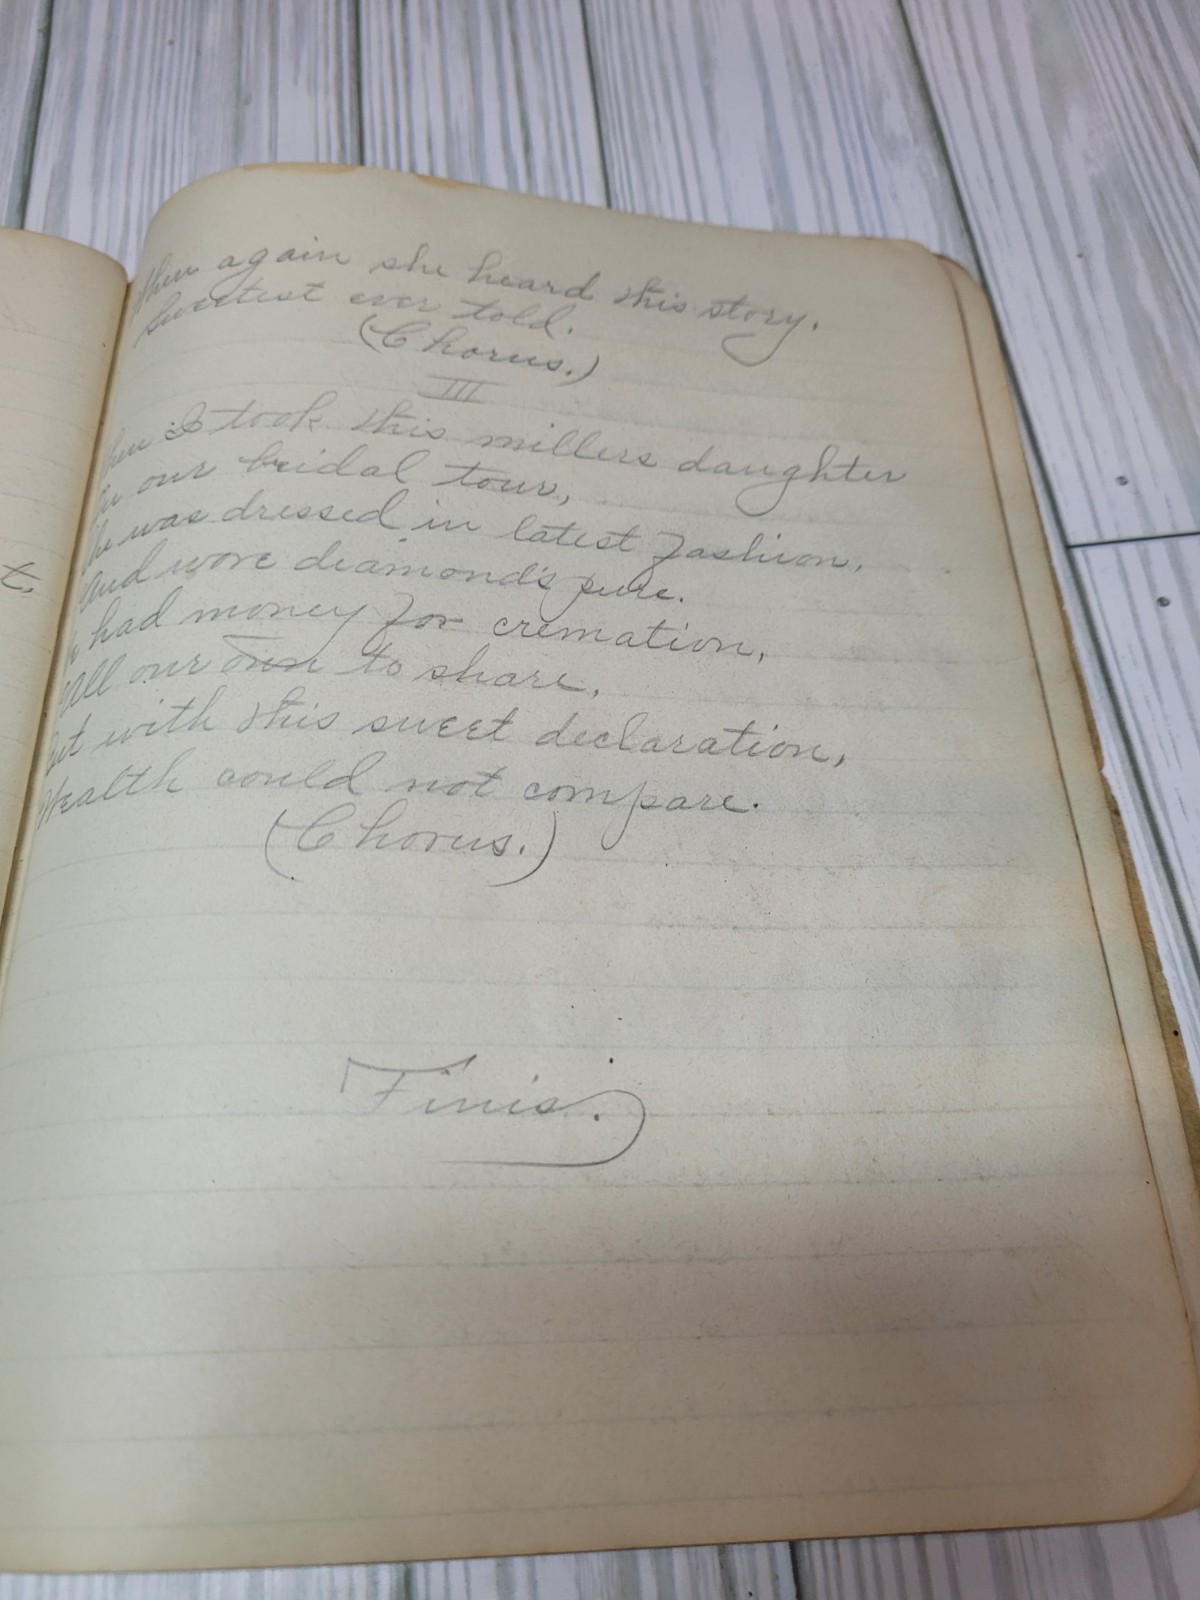 t.
Then again she heard this story.
Sweetest ever told.
(Chorus.)
III
I took this millers daughter
our bridal tour,
was dressed in latest fashion,
And wore diamond's pure.
had money for cremation,
All our own to share,
But with this sweet declaration,
Wealth could not compare.
(Chorus.)
Finis.